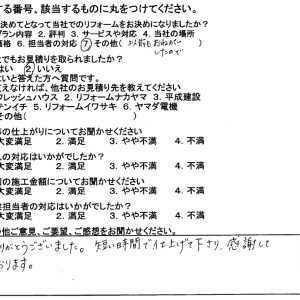 する番号、該当するものに丸をつけてください。
決めてとなって当社でのリフォームをお決めになりましたか?
プラン内容 2. 評判 3. サービスや対応 4. 当社の場所
価格 6. 担当者の対応 7 その他( 以前もおねがい
したので
社でもお見積りを取られましたか?
はい 2 いいえ
はいと答えた方へ質問です。
支えなければ、他社のお見積り先を教えてください
フレッシュハウス 2. リフォームナカヤマ 3. 平成建設
テンイチ 5. リフォームイワサキ 6. ヤマダ電機
その他(
事の仕上がりについてお聞かせください
大変満足 2. 満足 3. やや不満 4. 不満
人の対応はいかがでしたか?
大変満足 2. 満足 3. やや不満 4. 不満
回の施工金額についてお聞かせください
大変満足 2. 満足 3. やや不満 4. 不満
業担当者の対応はいかがでしたか?
大変満足 2. 満足 3. やや不満 4. 不満
他ご意見、ご要望、ご感想をお聞かせください。
りがとうございました。短い時間で仕上げて下さり、感謝して
おります。